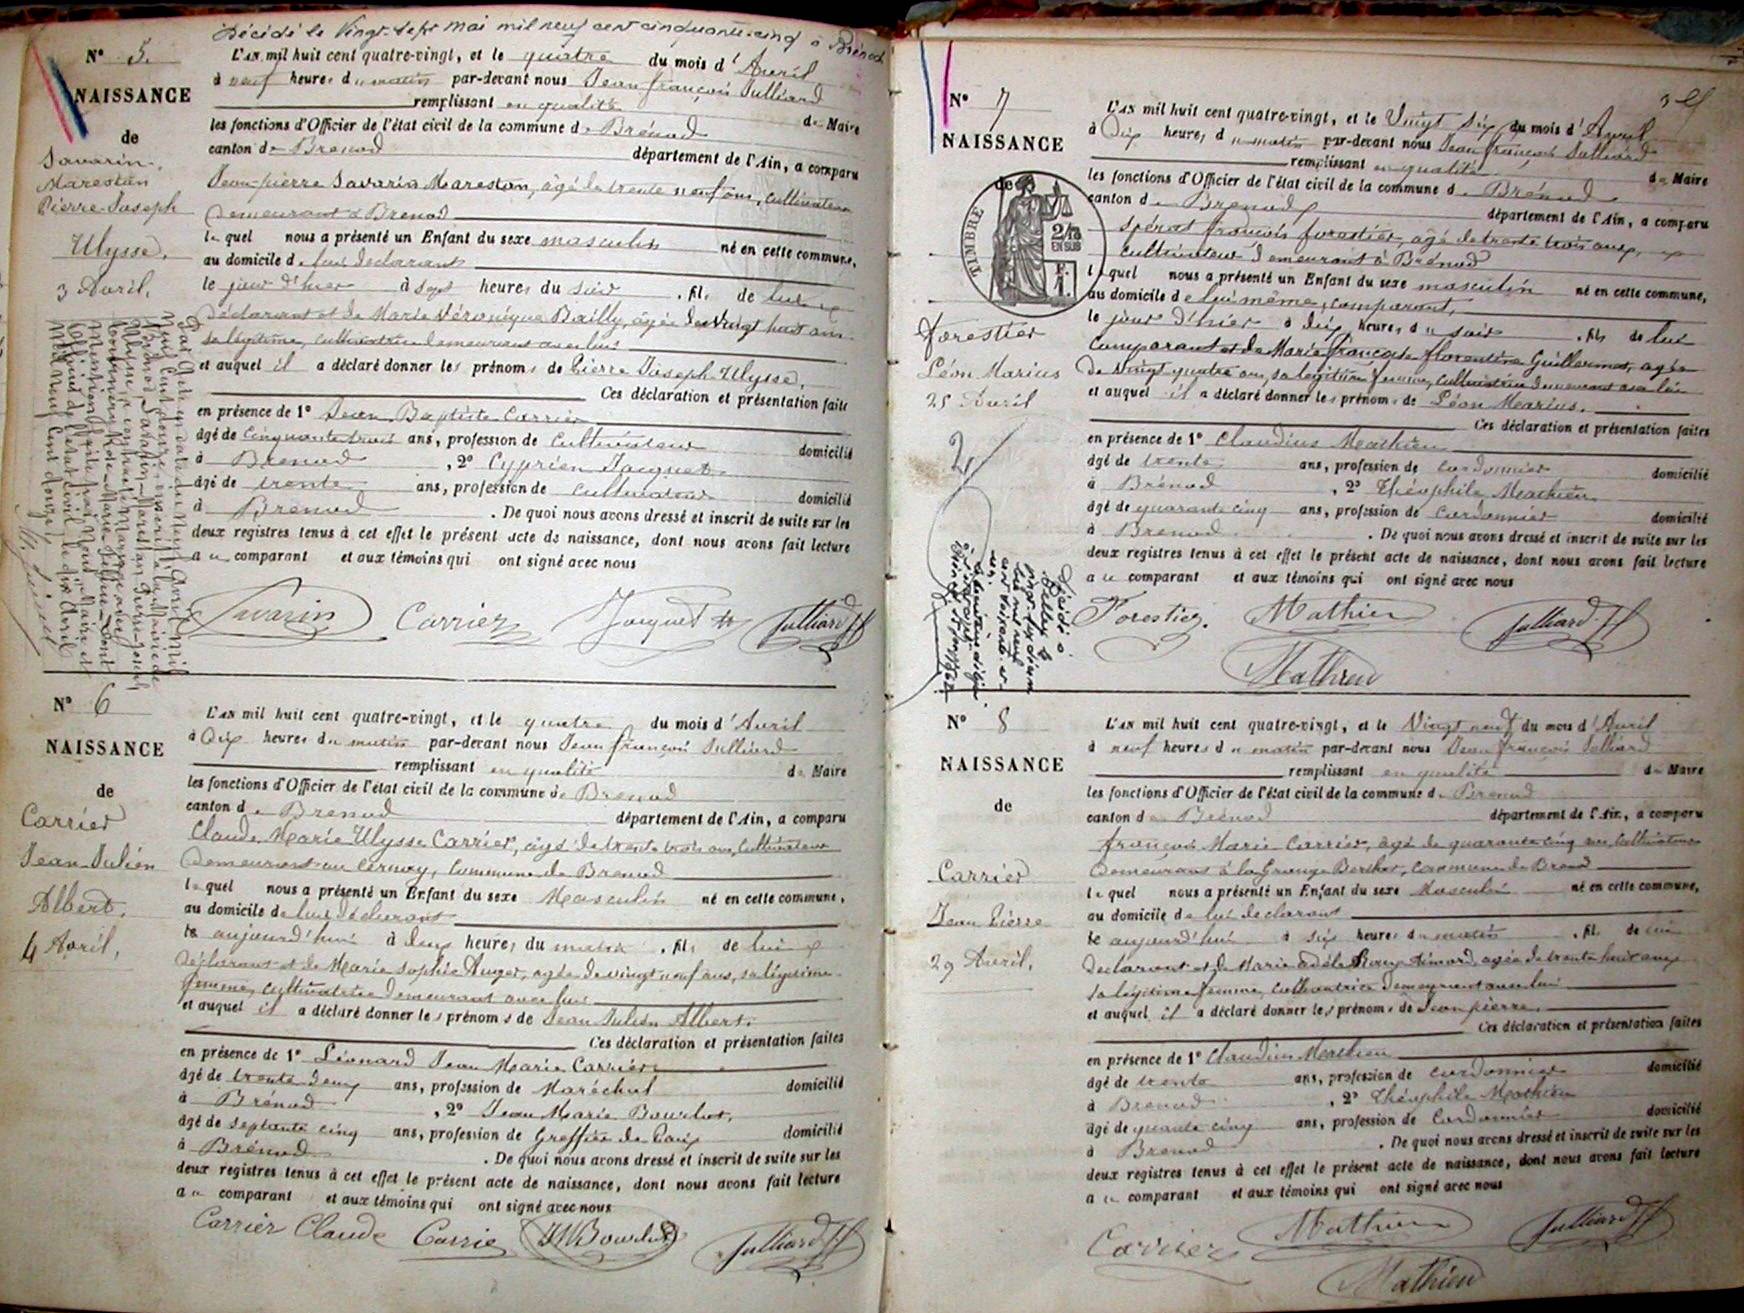 Décédé le Vingt-sept mai mil neuf cent cinquante-cinq à Brénod
N° 5.
NAISSANCE
de
Savarin-
Marestan
Pierre-Joseph
Ulysse.
3 Avril.
L'AN mil huit cent quatre-vingt, et le quatre du mois d'Avril
à neuf heures du matin par-devant nous Jean françois Julliard
remplissant en qualité de Maire
les fonctions d'Officier de l'état civil de la commune de Brénod
canton de Brenod département de l'Ain, a comparu
Jean-pierre Savarin Marestan, âgé de trente neuf ans, cultivateur
Demeurant à Brenod
lequel nous a présenté un Enfant du sexe masculin né en cette commune,
au domicile de lui déclarant
le jour d'hier à sept heures du soir, fils de lui
déclarant et de Marie Véronique Bailly, âgée de vingt huit ans
sa légitime, cultivatrice demeurant avec lui
et auquel il a déclaré donner les prénoms de Pierre Joseph-Ulysse.
Ces déclaration et présentation faite
en présence de 1° Jean Baptiste Carrier
âgé de cinquante trois ans, profession de cultivateur domicilié
à Brenod, 2° Cyprien Jacquet
âgé de trente ans, profession de cultivateur domicilié
à Brenod. De quoi nous avons dressé et inscrit de suite sur les
deux registres tenus à cet effet le présent acte de naissance, dont nous avons fait lecture
au comparant et aux témoins qui ont signé avec nous
Savarin Carrier Jacquet Julliard Jf
N° 6
NAISSANCE
de
Carrier
Jean-Julien
Albert.
4 Avril,
L'AN mil huit cent quatre-vingt, et le quatre du mois d'Avril
à Dix heures du matin par-devant nous Jean françois Julliard
remplissant en qualité de Maire
les fonctions d'Officier de l'état civil de la commune de Brenod
canton de Brenod département de l'Ain, a comparu
Claude Marie Ulysse Carrier, âgé de trente trois ans, Cultivateur
Demeurant au Cernay, Commune de Brenod
lequel nous a présenté un Enfant du sexe Masculin né en cette commune,
au domicile de lui déclarant
le aujourd'hui à deux heures du matin, fils de lui
Déclarant et de Marie Sophie Auger, agée de vingt neuf ans, sa légitime
femme, cultivatrice demeurant avec lui
et auquel il a déclaré donner les prénoms de Jean Julien Albert.
Ces déclaration et présentation faites
en présence de 1° Léonard Jean Marie Carrier
âgé de trente deux ans, profession de Maréchal domicilié
à Brénod, 2° Jean Marie Bourlot,
âgé de septante cinq ans, profession de Greffier de Paix domicilié
à Brénod. De quoi nous avons dressé et inscrit de suite sur les
deux registres tenus à cet effet le présent acte de naissance, dont nous avons fait lecture
au comparant et aux témoins qui ont signé avec nous
Carrier Claude Carrie JMBourlot Julliard Jf
N° 7
NAISSANCE
de
TIMBRE
2/10
EN SUS
Forestier
Léon Marius
25 Avril
2
L'AN mil huit cent quatre-vingt, et le Vingt six du mois d'Avril
à Dix heures du matin par-devant nous Jean françois Julliard
remplissant en qualité de Maire
les fonctions d'Officier de l'état civil de la commune de Brénod
canton de Brenod département de l'Ain, a comparu
françois forestier, agé de trente trois ans,
cultivateur Demeurant à Brénod
lequel nous a présenté un Enfant du sexe masculin né en cette commune,
au domicile de lui même, comparant,
le jour d'hier à dix heures du soir, fils de lui
comparant et de Marie françoise florentine Guillermet, agée
de vingt quatre ans, sa légitime femme, cultivatrice demeurant avec lui
et auquel il a déclaré donner les prénoms de Léon Marius.
Ces déclaration et présentation faites
en présence de 1° Claudius Mathieu
âgé de trente ans, profession de cordonnier domicilié
à Brénod, 2° Théophile Mathieu
âgé de quarante cinq ans, profession de Cordonnier domicilié
à Brenod. De quoi nous avons dressé et inscrit de suite sur les
deux registres tenus à cet effet le présent acte de naissance, dont nous avons fait lecture
au comparant et aux témoins qui ont signé avec nous
Forestier. Mathieu Julliard Jf
Mathieu
N° 8
NAISSANCE
de
Carrier
Jean Pierre
29 Avril,
L'AN mil huit cent quatre-vingt, et le Vingt neuf du mois d'Avril
à neuf heures du matin par-devant nous Jean françois Julliard
remplissant en qualité de Maire
les fonctions d'Officier de l'état civil de la commune de Brenod
canton de Brénod département de l'Ain, a comparu
françois Marie Carrier, âgé de quarante cinq ans, Cultivateur
Demeurant à la Grange Berthet, commune de Brenod
lequel nous a présenté un Enfant du sexe Masculin né en cette commune,
au domicile de lui declarant
le aujourd'hui à six heures du matin, fils de lui
declarant et de Marie adèle Aimard, agée de trente huit ans
sa légitime femme, cultivatrice demeurant avec lui
et auquel il a déclaré donner les prénoms de Jean pierre
Ces déclaration et présentation faites
en présence de 1° Claudius Mathieu
âgé de trente ans, profession de cordonnier domicilié
à Brenod, 2° Théophile Mathieu
âgé de quarante cinq ans, profession de Cordonnier domicilié
à Brenod. De quoi nous avons dressé et inscrit de suite sur les
deux registres tenus à cet effet le présent acte de naissance, dont nous avons fait lecture
au comparant et aux témoins qui ont signé avec nous
Carrier Mathieu Julliard Jf
Mathieu